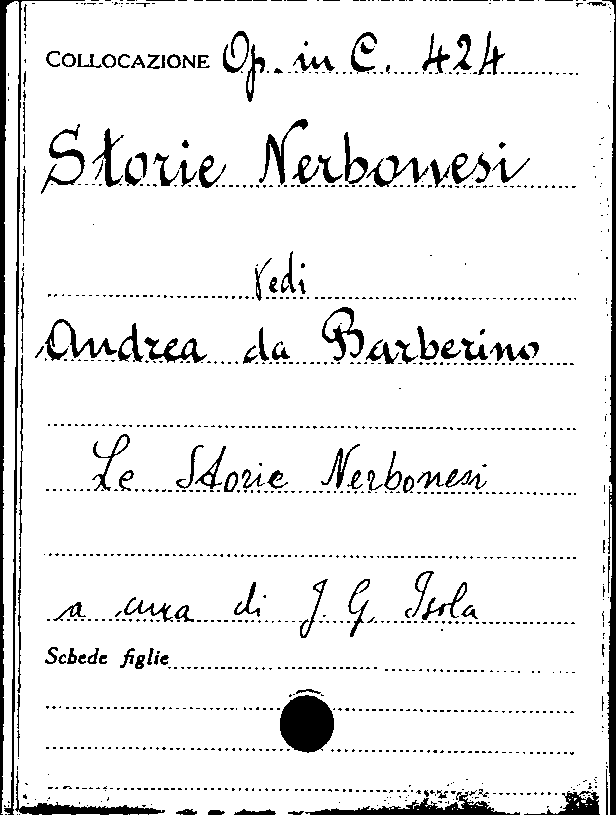 COLLOCAZIONE Op. in C. 424
Storie Nerbonesi
Vedi
Andrea da Barberino
Le Storie Nerbonesi
a cura di J. G. Isola
Schede figlie